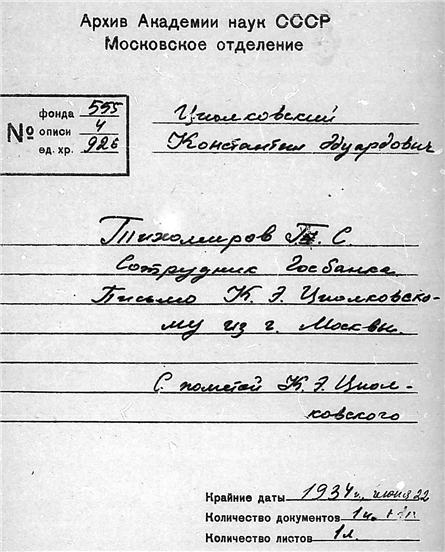 Архив Академии наук СССР
Московское отделение
№
фонда 555
описи 4
ед. хр. 926
Циолковский
Константин Эдуардович
Тихомиров С.
Сотрудник Госбанка
Письмо К. Э. Циолковско-
му из г. Москвы.
С пометой К. Э. Циол-
ковского
Крайние даты 1934 г., июня 22
Количество документов 1
Количество листов 1 л.